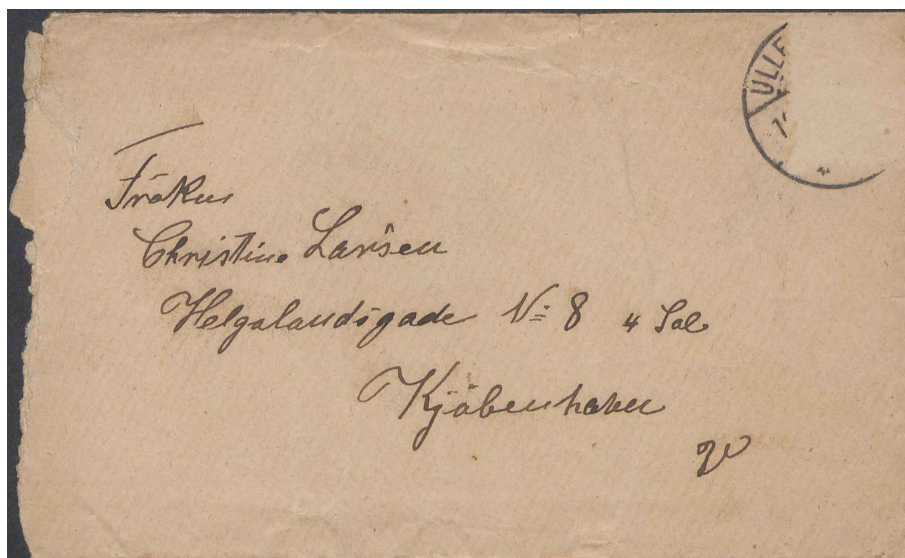 ULLE
Fröken
Christine Larsen
Helgolandsgade No 8 4 Sal
Kjöbenhavn